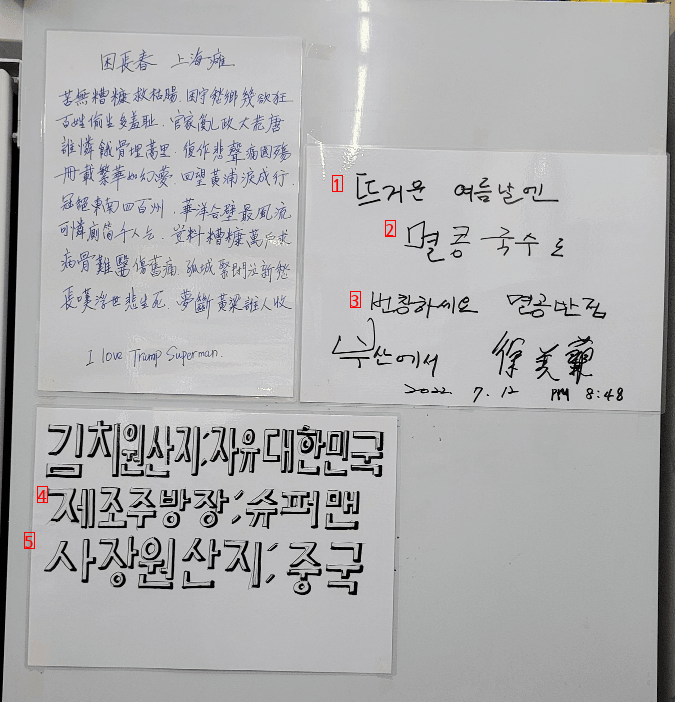 困長春 上海難
苦無糟糠救枯腸.困守愁鄉幾欲狂
百姓偷生多羞耻.官家亂政大荒唐
誰憐餓骨埋萬里.復作悲聲病國殤
冊載繁華如幻夢.回望黃浦淚成行
冠絕東南四百洲.華洋合壁最風流
可憐廁筒千人去.豈料糟糠萬戶求
病骨難醫傷舊痛.孤城緊閉泣新愁
長嘆浮世悲生死.夢斷黃梁誰人收
I love Trump Superman.
1 뜨거운 여름날엔
2 멸콩국수로
3 번창하세요 멸공반점
부산에서 徐美蘭
2022 7.12 PM 8:48
김치원산지;자유대한민국
4 제조주방장;슈퍼맨
5 사장원산지;중국